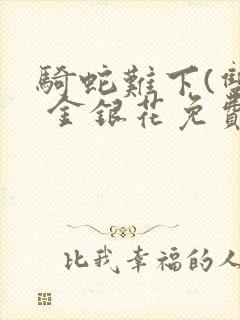 騎蛇難下(雙
金銀花免費
比我幸福的人